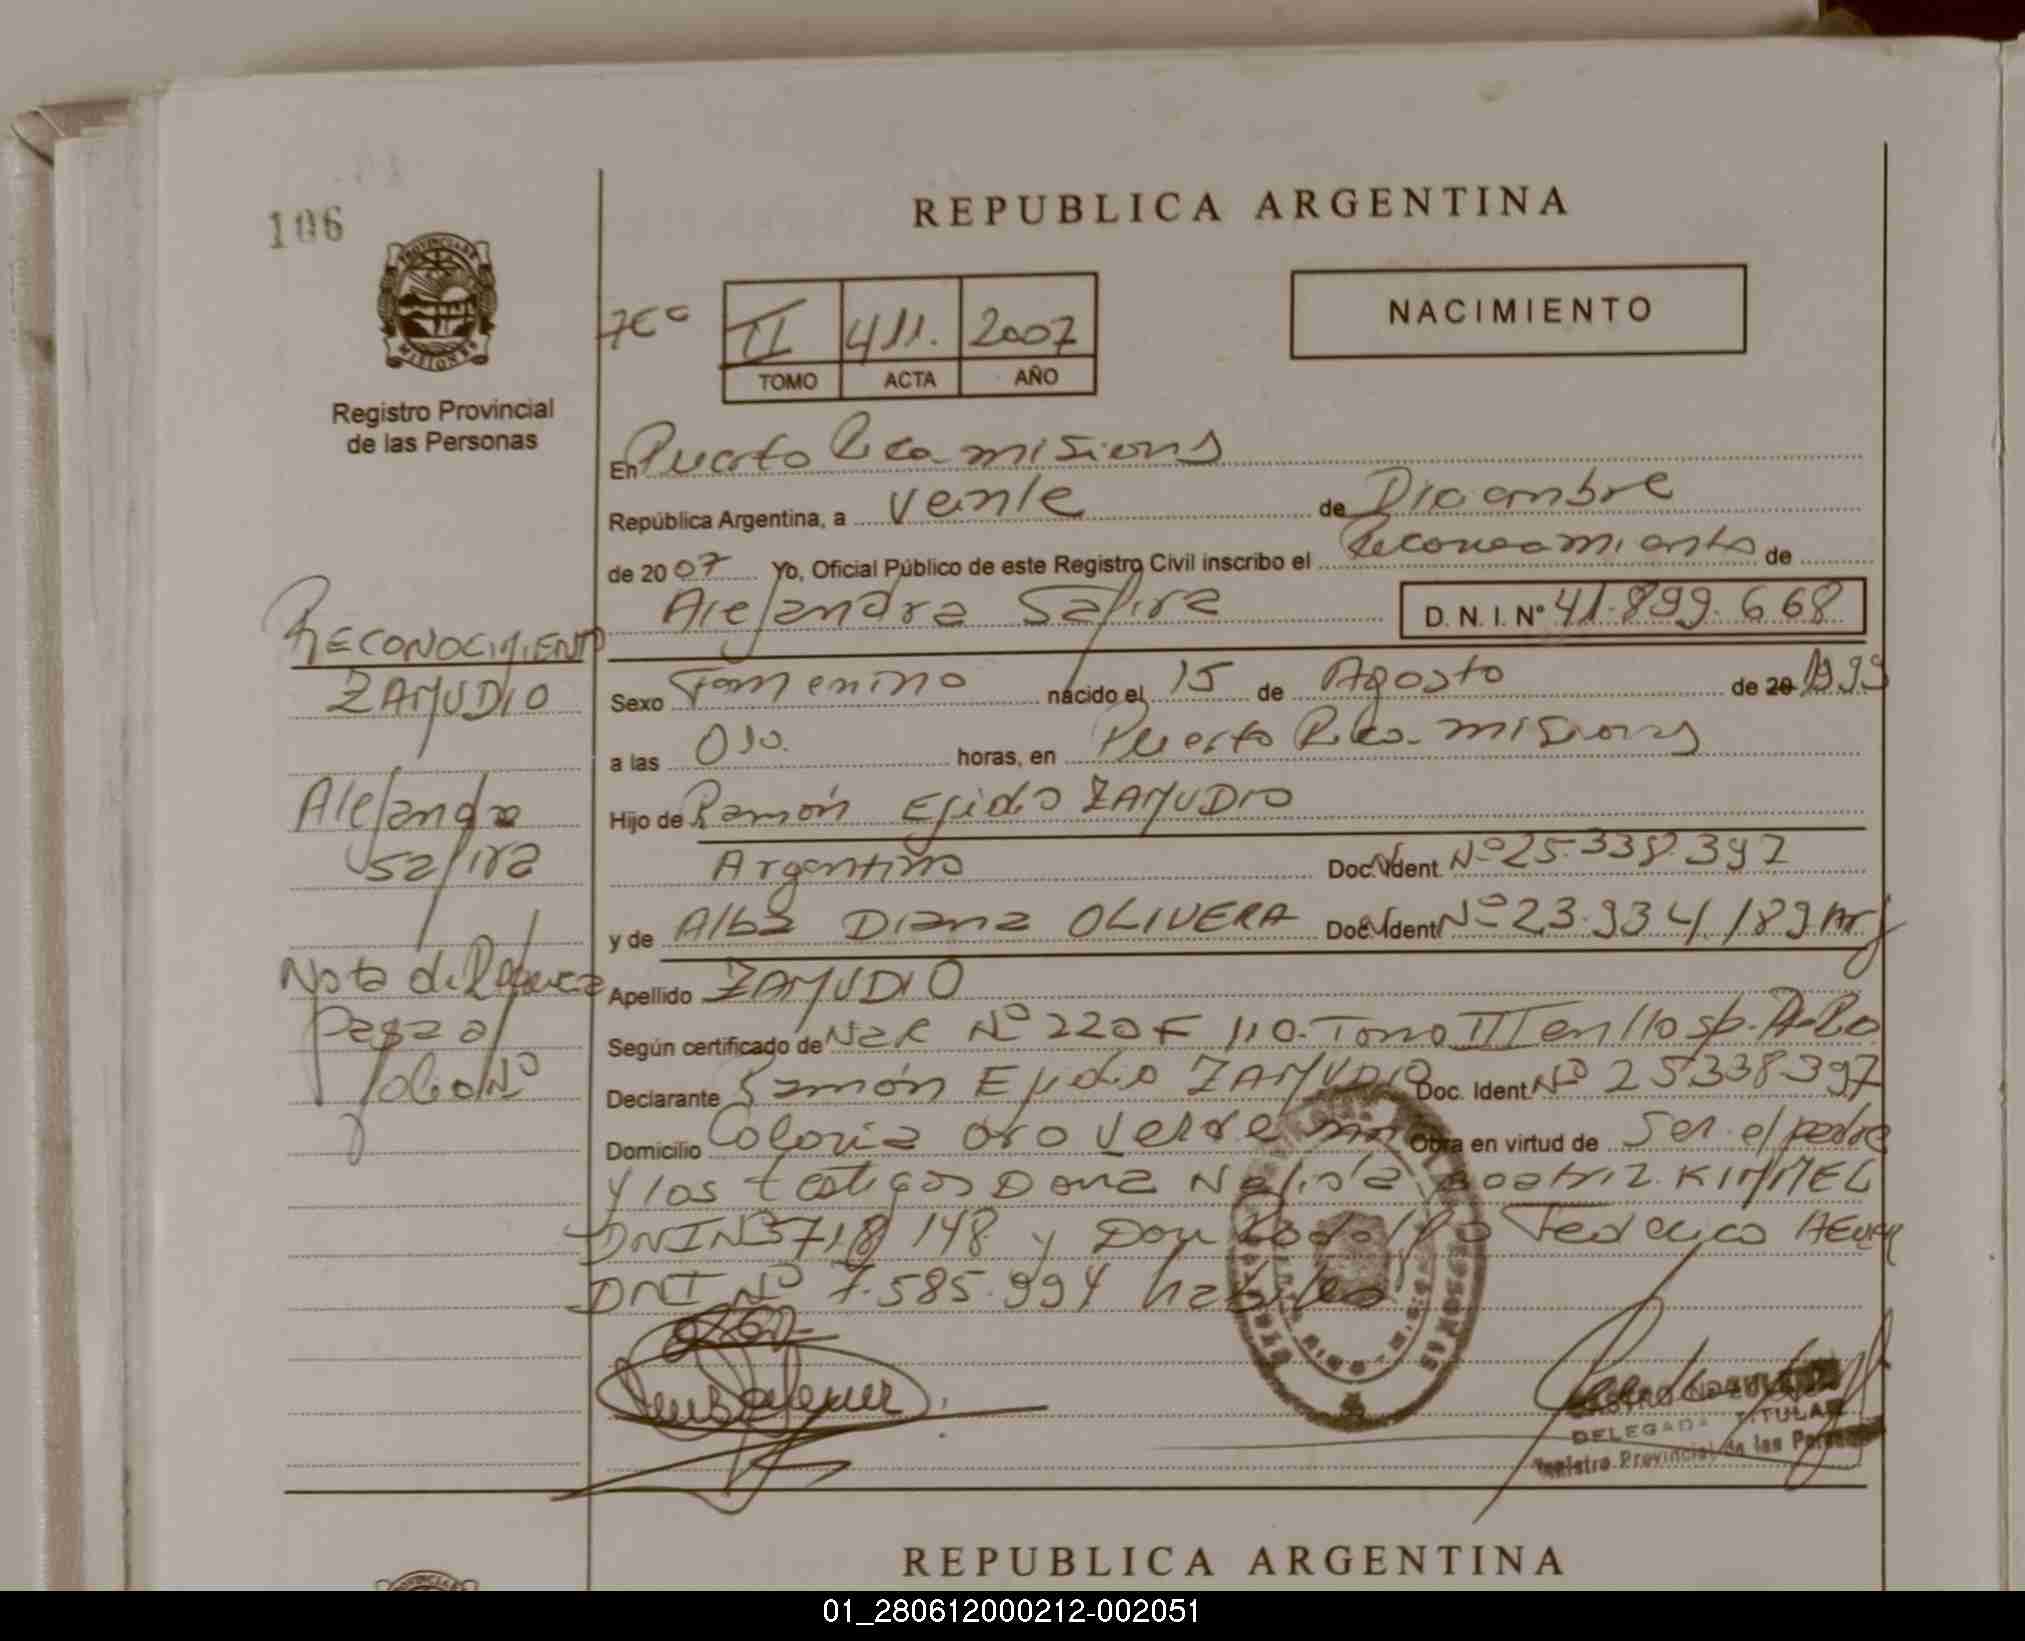 106
REPUBLICA ARGENTINA
NACIMIENTO
II 411. 2007
TOMO ACTA AÑO
Registro Provincial
de las Personas
En Puerto Rico misiones
República Argentina, a veinte de Diciembre
de 2007 Yo, Oficial Público de este Registro Civil inscribo el Reconocimiento de
Alejandra Safira D. N. I. Nº 41.899.668
RECONOCIMIENTO
ZAMUDIO
Alejandra
Safira
Nota de Referencia
Pasa al
folio Nº
Sexo Femenino nacido el 15 de Agosto de 20 1999
a las 0,10. horas, en Puerto Rico misiones
Hijo de Ramón Ejidio ZAMUDIO
Argentino Doc. Ident. Nº 25.338.397
y de Alba Diana OLIVERA Doc. Ident Nº 23.934.189 Arg
Apellido ZAMUDIO
Según certificado de Nac Nº 220 F 110. Tomo III
Declarante Ramón Ejidio ZAMUDIO Doc. Ident. Nº 25338397
Domicilio Colonia Oro Verde mnes Obra en virtud de Ser el padre
y los testigos Doña Nelida Beatriz KIMMEL
DNI Nº 148 y Don Rodolfo Federico
DNI Nº 7.585.994 habiles
DELEGADA TITULAR
Registro Provincial de las Personas
REPUBLICA ARGENTINA
01_280612000212-002051